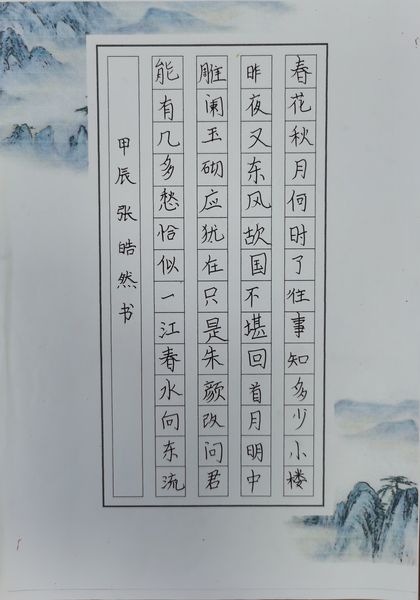 春花秋月何时了往事知多少小楼
昨夜又东风故国不堪回首月明中
雕阑玉砌应犹在只是朱颜改问君
能有几多愁恰似一江春水向东流
甲辰张皓然书